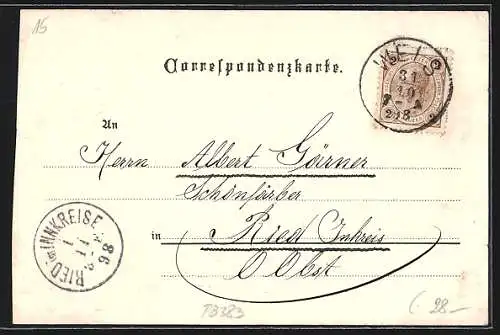 15
Correspondenzkarte.
WELS
31
10
98
An
Herrn Albert Görner
Schönfärber
in Ried Inkreis
O Öbst
RIED im INNKREISE
1
11
98
PB383
28—